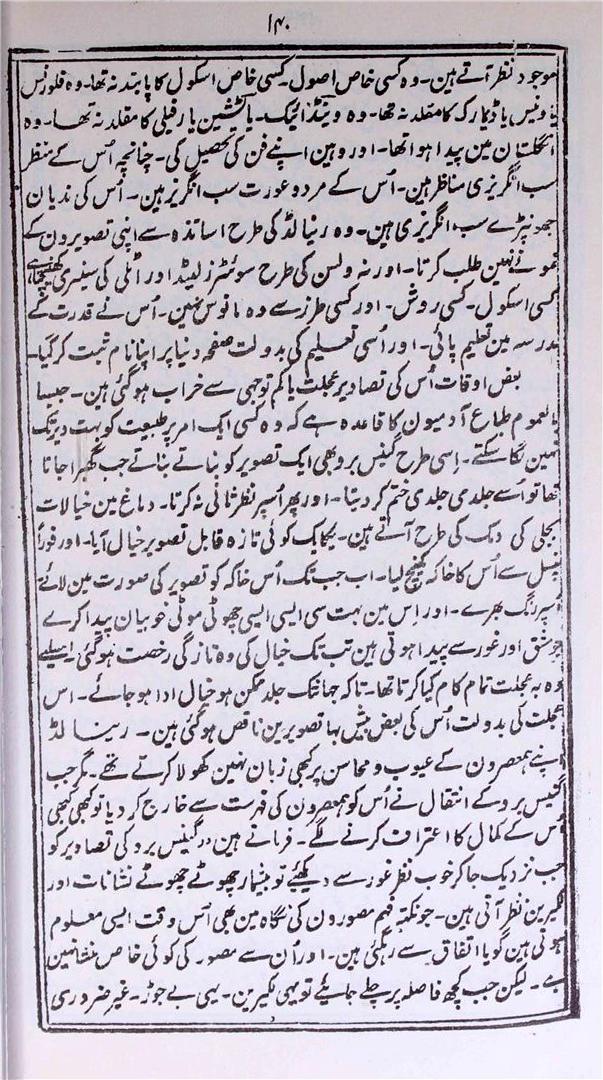 ۱۴۰
موجود نظر آتے ہین۔ وہ کسی خاص اصول۔ کسی خاص اسکول کا پابند نہ تھا۔ وہ فلورنس
یا وینس یا ڈنمارک کا مقلد نہ تھا۔ وہ وینڈائیک۔ یا ٹیشین یا رفیلی کا مقلد نہ تھا۔ وہ
انگلستان مین پیدا ہوا تھا۔ اور وہین اپنے فن کی تحصیل کی۔ چنانچہ اُس کے منظر
سب انگریزی مناظر ہین۔ اُس کے مرد و عورت سب انگریز ہین۔ اُس کی ندیان
جھونپڑے سب انگریزی ہین۔ وہ رینالڈ کی طرح اساتذہ سے اپنی تصویرون کے
نمونے نہین طلب کرتا۔ اور نہ ولسن کی طرح سوئٹزرلینڈ اور اٹلی کی سینری کھینچتا ہے
کسی اسکول۔ کسی روش۔ اور کسی طرز سے وہ مانوس نہین۔ اُس نے قدرت کے
مدرسہ مین تعلیم پائی۔ اور اُسی تعلیم کی بدولت صفحہ دنیا پر اپنا نام ثبت کر گیا۔
بعض اوقات اُس کی تصاویر عجلت یا کم توجہی سے خراب ہو گئی ہین۔ جیسا
بالعموم طباع آدمیون کا قاعدہ ہے کہ وہ کسی ایک امر پر طبیعت کو بہت دیر تک
نہین لگا سکتے۔ اِسی طرح گینس برو بھی ایک تصویر کو بناتے بناتے جب گھبرا جاتا
تھا تو اُسے جلدی جلدی ختم کر دیتا۔ اور پھر اُسپر نظر ثانی نہ کرتا۔ دماغ مین خیالات
بجلی کی دمک کی طرح آتے ہین۔ یکایک کوئی تازہ قابل تصویر خیال آیا۔ اور فوراً
پنسل سے اُس کا خاکہ کھینچ لیا۔ اب جب تک اُس خاکہ کو تصویر کی صورت مین لائے
اُسپر رنگ بھرے۔ اور اِس مین بہت سی ایسی ایسی چھوٹی موٹی خوبیان پیدا کرے
جو مشق اور غور سے پیدا ہوتی ہین تب تک خیال کی وہ تازگی رخصت ہو گئی۔ اسلیے
وہ بہ عجلت تمام کام کیا کرتا تھا۔ تاکہ جہانتک جلد ممکن ہو خیال ادا ہو جائے۔ اس
عجلت کی بدولت اُس کی بعض بیش بہا تصویرین ناقص ہو گئی ہین۔ رینالڈ
اپنے ہمعصرون کے عیوب و محاسن پر کبھی زبان نہین کھولا کرتے تھے۔ مگر جب
گینس برو کے انتقال نے اُس کو ہمعصرون کی فہرست سے خارج کر دیا تو کبھی کبھی
اُس کے کمال کا اعتراف کرنے لگے۔ فرماتے ہین "گینس برو کی تصاویر کو
جب نزدیک جا کر خوب نظر غور سے دیکھئے تو بیشمار چھوٹے چھوٹے نشانات اور
لکیرین نظر آتی ہین۔ جو نکتہ فہم مصورون کی نگاہ مین بھی اُس وقت ایسی معلوم
ہوتی ہین گویا اتفاق سے رہگئی ہین۔ اور اُن سے مصور کی کوئی خاص منشا نہین
ہے۔ لیکن جب کچھ فاصلہ پر چلے جایئے تو یہی لکیرین۔ یہی بے جوڑ۔ غیر ضروری